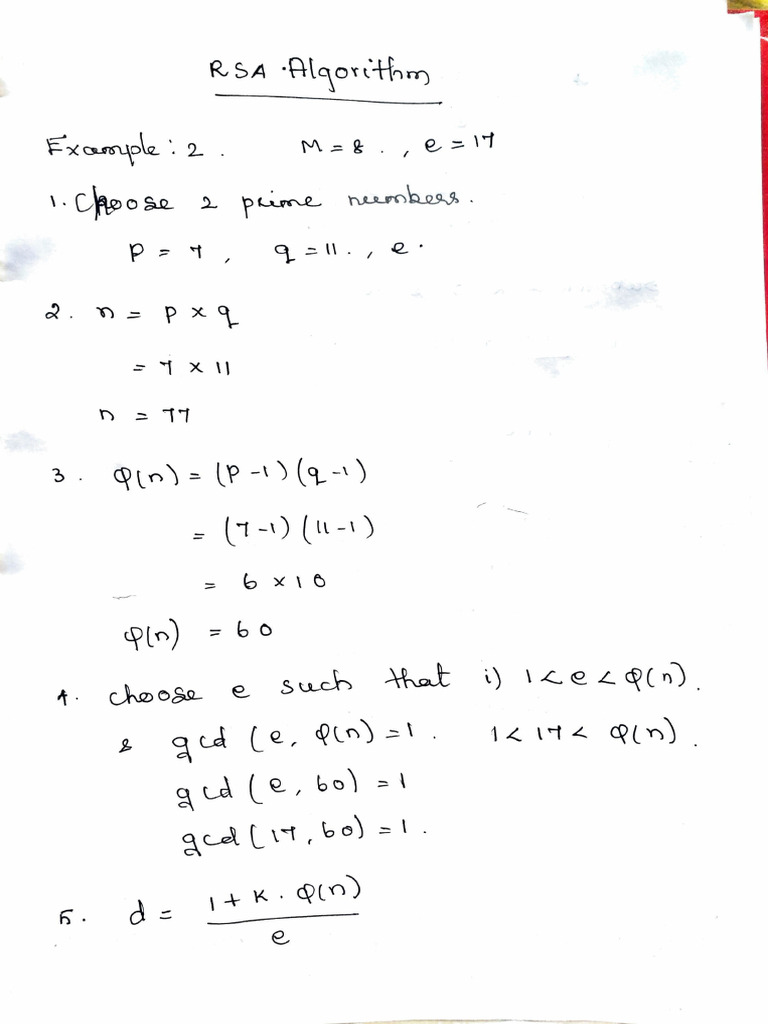 RSA Algorithm
Example: 2. M = 8. , e = 17
1. Choose 2 prime numbers.
P = 7, q = 11. , e.
2. n = p × q
= 7 × 11
n = 77
3. φ(n) = (p - 1) (q - 1)
= (7-1) (11-1)
= 6 × 10
φ(n) = 60
4. choose e such that i) 1 < e < φ(n).
& gcd (e, φ(n) = 1. 1 < 17 < φ(n).
gcd (e, 60) = 1
gcd (17, 60) = 1.
5. d = 1 + K . φ(n)
e